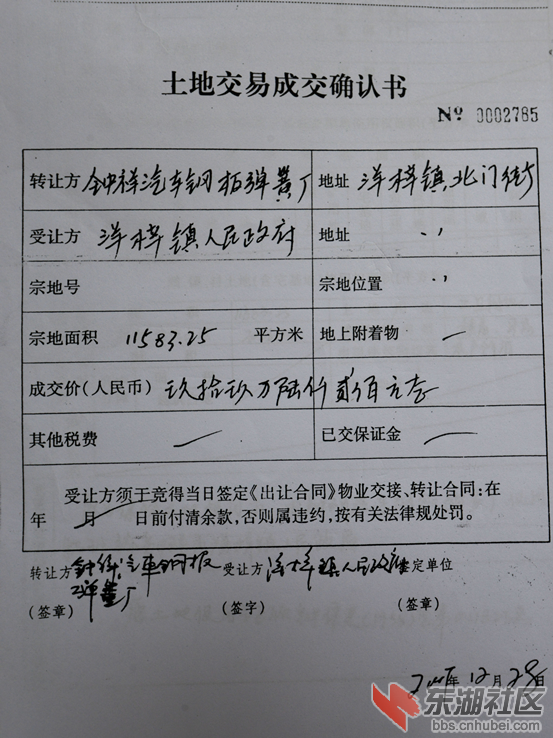 土地交易成交确认书
№ 0002785
转让方 钟祥汽车钢板弹簧厂 地址 洋梓镇北门街
受让方 洋梓镇人民政府 地址 〃
宗地号 宗地位置 〃
宗地面积 11583.25 平方米 地上附着物 —
成交价(人民币) 玖拾玖万陆仟贰佰元整
其他税费 — 已交保证金 —
受让方须于竞得当日签定《出让合同》物业交接、转让合同:在
年 月 日前付清余款,否则属违约,按有关法律规处罚。
转让方 钟祥汽车钢板 受让方 洋梓镇人民政府 定单位
弹簧厂
(签章) (签字) (签章)
年12月28日
东湖社区
bbs.cnhubei.com